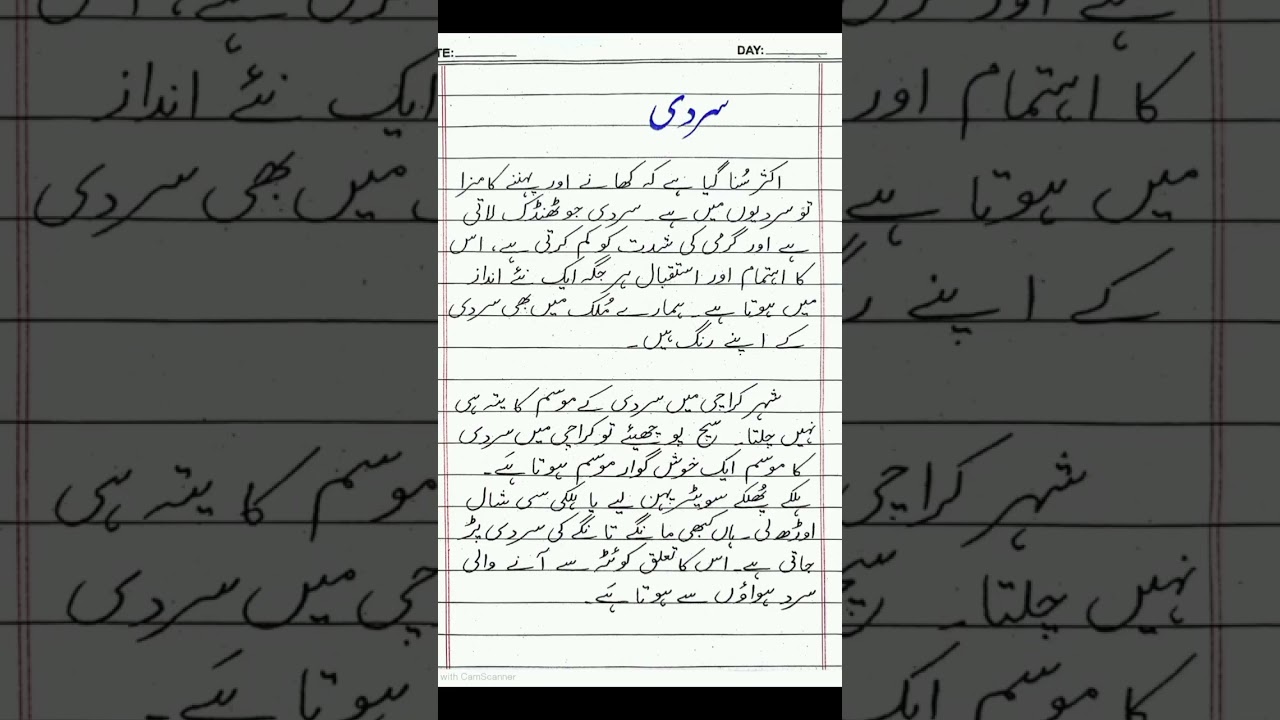 TE:
DAY:
سردی
اکثر سُنا گیا ہے کہ کھانے اور پہننے کا مزا
تو سردیوں میں ہے۔ سردی جو ٹھنڈک لاتی
ہے اور گرمی کی شدت کو کم کرتی ہے، اس
کا اہتمام اور استقبال ہر جگہ ایک نئے انداز
میں ہوتا ہے۔ ہمارے مُلک میں بھی سردی
کے اپنے رنگ ہیں۔
شہر کراچی میں سردی کے موسم کا پتہ ہی
نہیں چلتا۔ سچ پوچھیئے تو کراچی میں سردی
کا موسم ایک خوش گوار موسم ہوتا ہَے۔
ہلکے پُھلکے سویٹر پہن لیے یا ہلکی سی شال
اوڑھ لی۔ ہاں کبھی مانگے تانگے کی سردی پڑ
جاتی ہے۔ اس کا تعلق کوئٹہ سے آنے والی
سرد ہواؤں سے ہوتا ہَے۔
with CamScanner